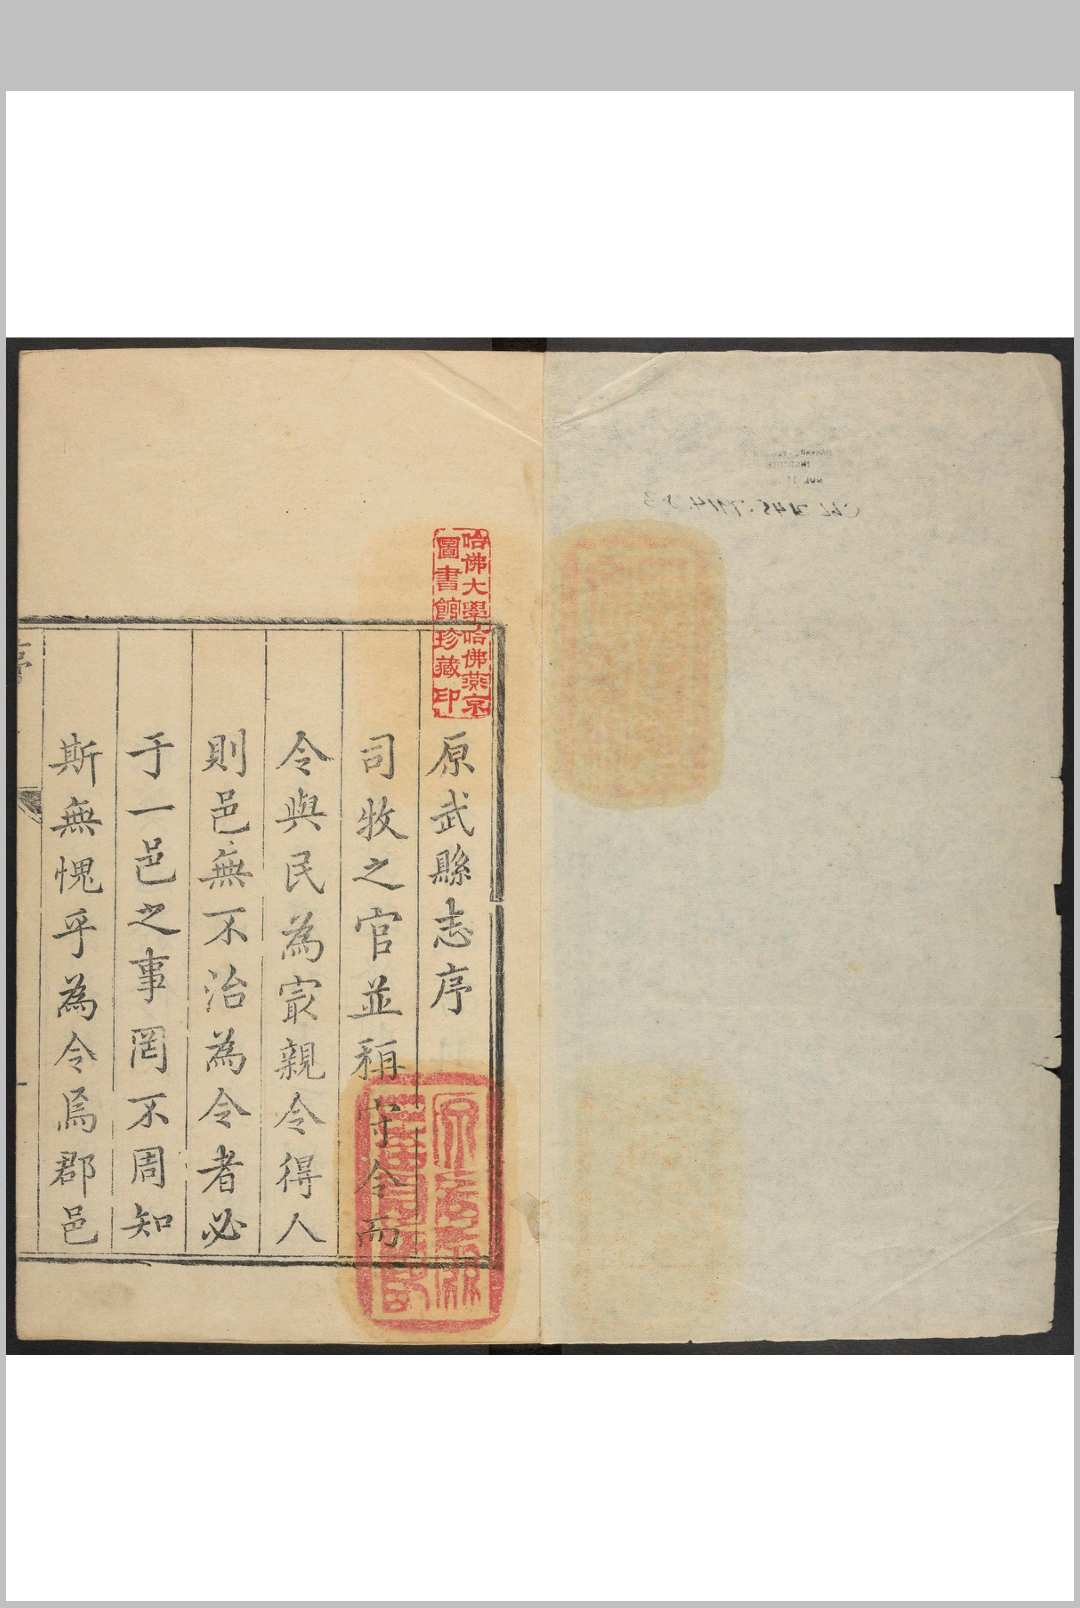 原武縣志序
司牧之官並稱守令而
令與民為㝡親令得人
則邑無不治為令者必
于一邑之事罔不周知
斯無愧乎為令焉郡邑
序
哈佛大學哈佛燕京
圖書館珍藏印